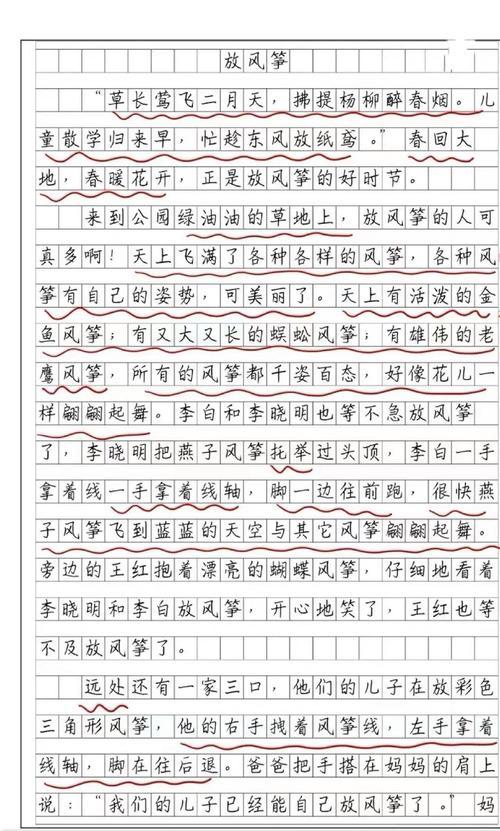 放风筝
“草长莺飞二月天，拂提杨柳醉春烟。儿
童散学归来早，忙趁东风放纸鸢。”春回大
地，春暖花开，正是放风筝的好时节。
来到公园绿油油的草地上，放风筝的人可
真多啊！天上飞满了各种各样的风筝，各种风
筝有自己的姿势，可美丽了。天上有活泼的金
鱼风筝；有又大又长的蜈蚣风筝；有雄伟的老
鹰风筝，所有的风筝都千姿百态，好像花儿一
样翩翩起舞。李白和李晓明也等不急放风筝
了，李晓明把燕子风筝托举过头顶，李白一手
拿着线一手拿着线轴，脚一边往前跑，很快燕
子风筝飞到蓝蓝的天空与其它风筝翩翩起舞。
旁边的王红抱着漂亮的蝴蝶风筝，仔细地看着
李晓明和李白放风筝，开心地笑了，王红也等
不及放风筝了。
远处还有一家三口，他们的儿子在放彩色
三角形风筝，他的右手拽着风筝线，左手拿着
线轴，脚在往后退。爸爸把手搭在妈妈的肩上
说：“我们的儿子已经能自己放风筝了。”妈